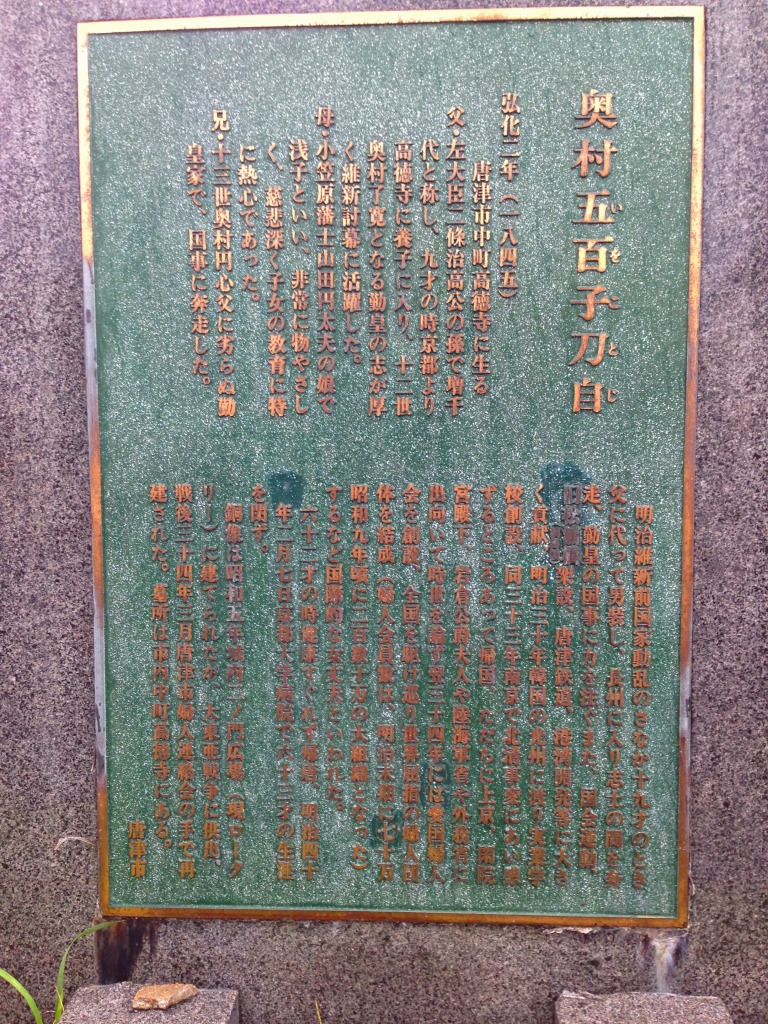 奥村五百子刀自
いをことじ
弘化二年（一八四五）
唐津市中町高徳寺に生る
父・左大臣二條治高公の孫で増千
代と称し、九才の時京都より
高徳寺に養子に入り、十二世
奥村了寛となる勤皇の志が厚
く維新討幕に活躍した。
母・小笠原藩士山田円太夫の娘で
浅子といい、非常に物やさし
く、慈悲深く子女の教育に特
に熱心であった。
兄・十三世奥村円心父に劣らぬ勤
皇家で、国事に奔走した。
明治維新前国家動乱のさなか十九才のとき
父に代って男装し、長州に入り志士の間を奔
走、勤皇の国事に力を注ぐまた、国会運動、
架設、唐津鉄道、港湾開発等に大き
く貢献、明治三十年韓国の光州に渡り実業学
校創設、同三十三年南京で北清事変にあい感
ずるところあって帰国、ただちに上京、閑院
宮殿下、岩倉公爵夫人や陸海軍省や外務省に
出向いて時世を論じ翌三十四年には愛国婦人
会を創設、全国を駆け巡り世界屈指の婦人団
体を結成（婦人会員数は、明治末頃に七十万
昭和九年頃に二百数十万の大組織となった）
するなど国際的な女丈夫といわれた。
六十二才の時健康すぐれず帰唐、明治四十
年二月七日京都大学病院で六十三才の生涯
を閉ず。
銅像は昭和五年城内二ノ門広場（現ローク
リー）に建てられたが、大東亜戦争に供出、
戦後三十四年三月唐津市婦人連絡会の手で再
建された。墓所は市内中町高徳寺にある。
唐津市